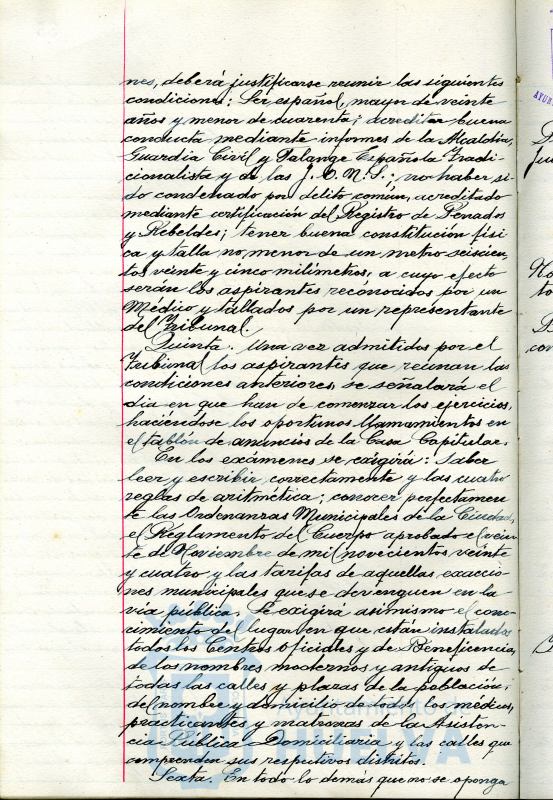 nes, deberá justificarse reunir las siguientes
condiciones: Ser español, mayor de veinte
años y menor de cuarenta; acreditar buena
conducta mediante informes de la Alcaldía,
Guardia Civil y Falange Española Tradi-
cionalista y de las J.O.N.S.; no haber si-
do condenado por delito común, acreditado
mediante certificación del Registro de Penados
y Rebeldes; tener buena constitución físi-
ca y talla no menor de un metro seiscien-
tos veinte y cinco milímetros, a cuyo efecto
serán los aspirantes reconocidos por un
Médico y tallados por un representante
del Tribunal.
Quinta. Una vez admitidos por el
Tribunal los aspirantes que reunan las
condiciones anteriores, se señalará el
día en que han de comenzar los ejercicios,
haciéndose los oportunos llamamientos en
el tablón de anuncios de la Casa Capitular.
En los exámenes se exigirá: Saber
leer y escribir correctamente y las cuatro
reglas de aritmética; conocer perfectamen
te las Ordenanzas Municipales de la Ciudad,
el Reglamento del Cuerpo aprobado el vein
te de Noviembre de mil novecientos veinte
y cuatro y las tarifas de aquellas exaccio
nes municipales que se devenguen en la
vía pública. Se exigirá asimismo el cono-
cimiento del lugar en que están instalados
todos los Centros Oficiales y de Beneficencia,
de los nombres modernos y antiguos de
todas las calles y plazas de la población;
del nombre y domicilio de todos los médicos,
practicantes y matronas de la Asisten-
cia Pública Domiciliaria y las calles que
comprenden sus respectivos distritos.
Sexta. En todo lo demás que no se oponga
Ayuntamiento de
HUELVA